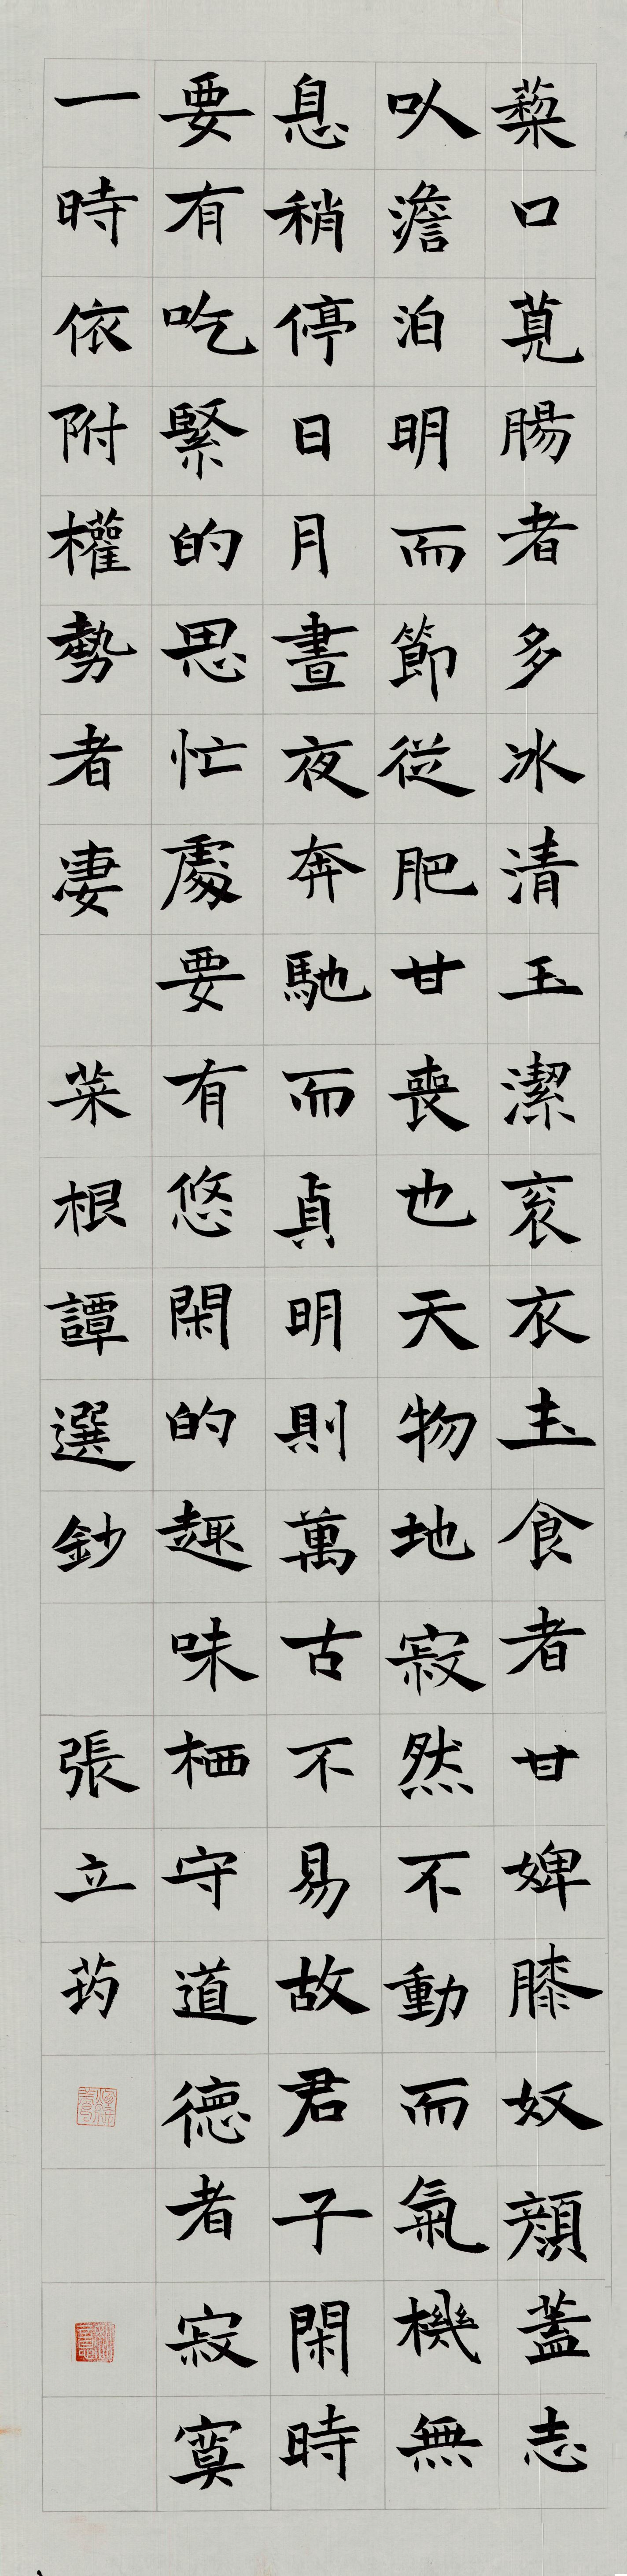 藜口莧腸者多冰清玉潔袞衣玉食者甘婢膝奴顏蓋志
以澹泊明而節從肥甘喪也天物地寂然不動而氣機無
息稍停日月晝夜奔馳而貞明則萬古不易故君子閑時
要有吃緊的思忙處要有悠閑的趣味栖守道德者寂寞
一時依附權勢者凄
菜根譚選鈔
張立葯